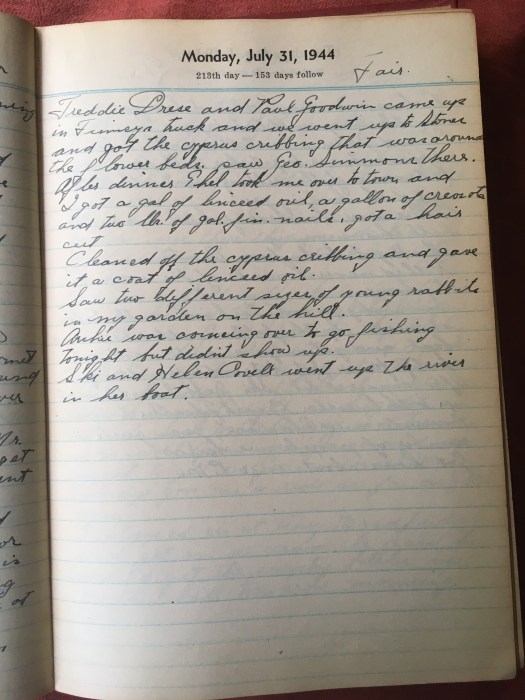 Monday, July 31, 1944
213th day — 153 days follow
Fair.
Freddie Drese and Paul Goodwin came up
in truck and we went up to Stones
and got the cyprus cribbing that was around
the flower beds. saw Geo. Simmons there.
After dinner Ethel took me over to town and
I got a gal of linceed oil, a gallon of creosote
and two lb. of gal. fin. nails, got a hair
cut
Cleaned off the cyprus cribbing and gave
it a coat of linceed oil.
Saw two different sizes of young rabbits
in my garden on the hill.
Archie was comeing over to go fishing
tonight but didn't show up.
Ski and Helen Covell went up the river
in her boat.